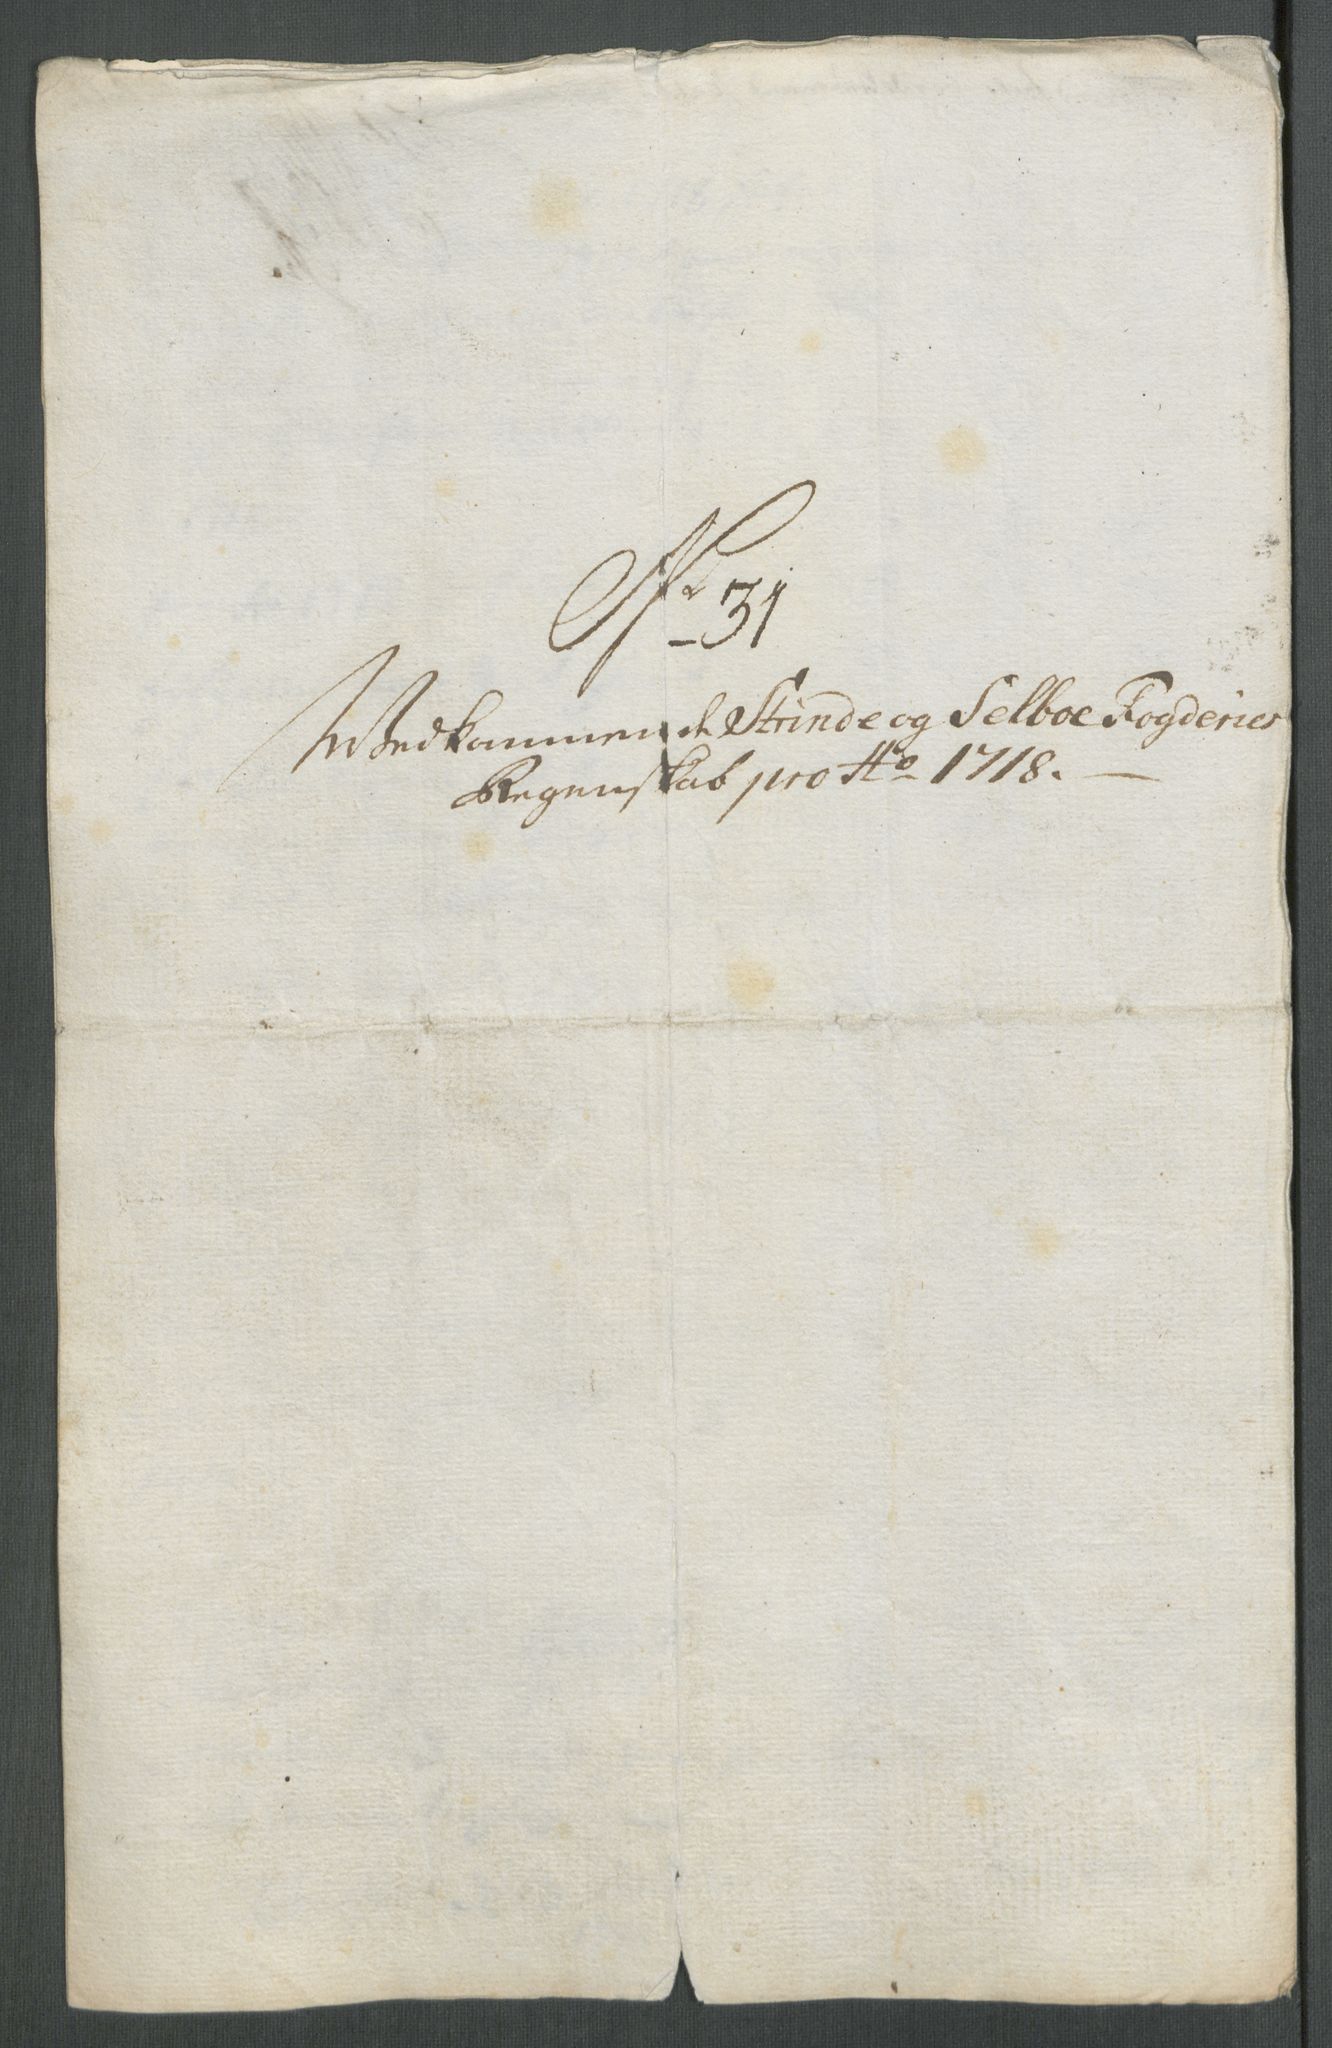 No 31
Wedkommende Strinde og Selboe Fogderies
Regenskab pro Ao 1718.